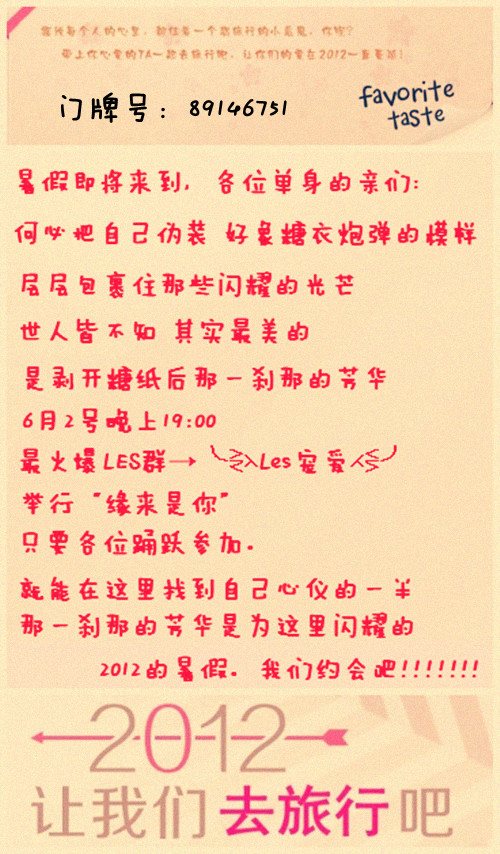 藏找每个人的心里，都住着一个想旅行的小恶魔，你呢？
带上你心爱的TA一起去旅行吧，让你们的爱在2012一直蔓延！
门牌号：89146751
favorite
taste
暑假即将来到，各位单身的亲们：
何必把自己伪装 好象糖衣炮弹的模样
层层包裹住那些闪耀的光芒
世人皆不知 其实最美的
是剥开糖纸后那一刹那的芳华
6月2号晚上19:00
最火爆LES群→ ╰⋛⋋Les宠爱⋌⋚╯
举行“缘来是你”
只要各位踊跃参加。
就能在这里找到自己心仪的一半
那一刹那的芳华是为这里闪耀的
2012的暑假。我们约会吧!!!!!!!
2012
让我们去旅行吧